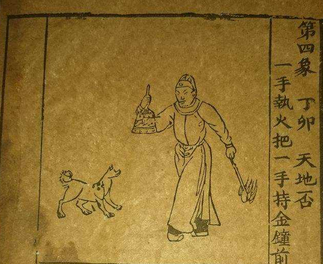 第四象 丁卯 天地否
一手執火把一手持金鐘前